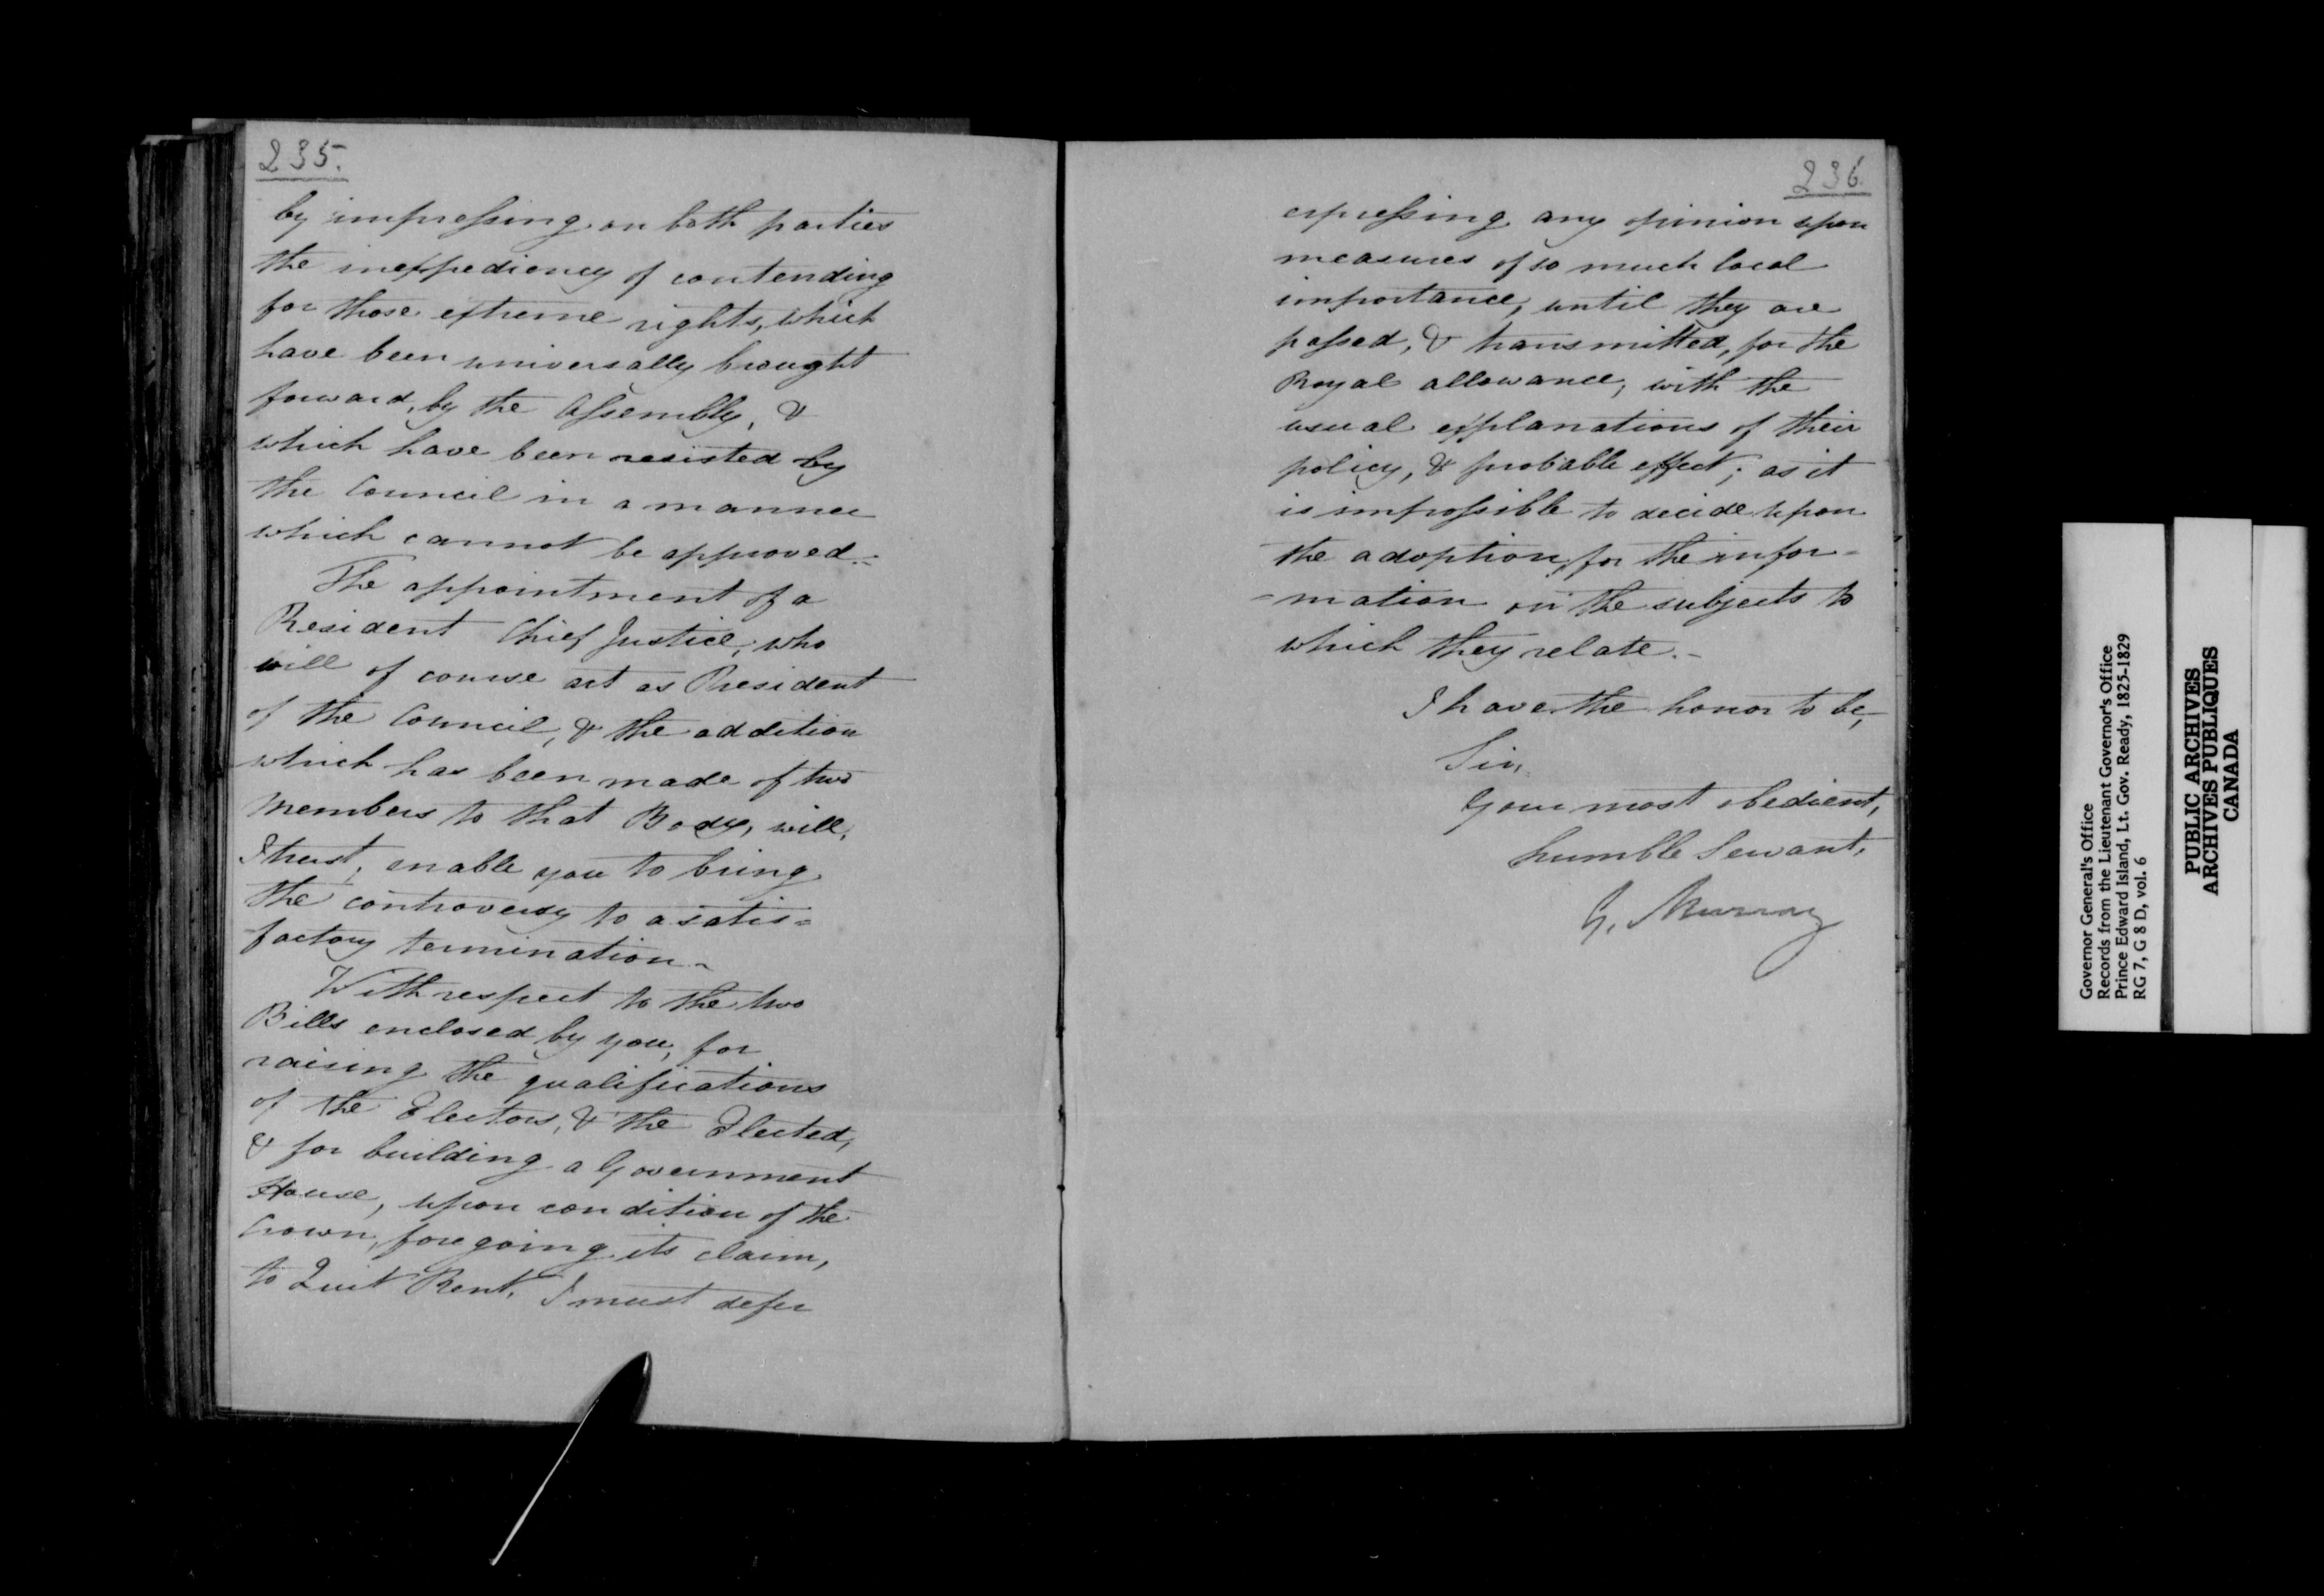 235.
by impressing on both parties
the inexpediency of contending
for those extreme rights, which
have been universally brought
forward, by the Assembly, &
which have been resisted by
the Council in a manner
which cannot be approved.-
The appointment of a
Resident Chief Justice, who
will of course act as President
of the Council, & the addition
which has been made of two
Members to that Body, will,
I trust, enable you to bring
the controversy to a satis=
factory termination.-
With respect to the two
Bills enclosed by you, for
raising the qualifications
of the Electors, & the Elected,
& for building a Government
House, upon condition of the
Crown, foregoing its claim,
to Quit Rent, I must defer
236
expressing any opinion upon
measures of so much local
importance, until they are
passed, & transmitted, for the
Royal allowance, with the
usual explanations of their
policy, & probable effect; as it
is impossible to decide upon
the adoption, for the infor=
=mation on the subjects to
which they relate.-
I have the honor to be,
Sir,
Your most obedient,
humble Servant,
G. Murray
Governor General's Office
Records from the Lieutenant Governor's Office
Prince Edward Island, Lt. Gov. Ready, 1825-1829
RG 7, G 8 D, vol. 6
PUBLIC ARCHIVES
ARCHIVES PUBLIQUES
CANADA